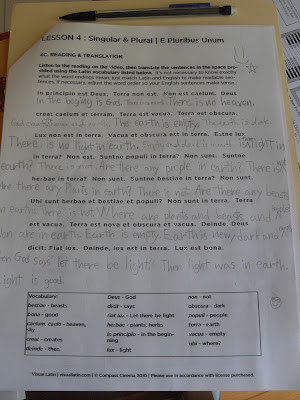 LESSON 4 : Singular & Plural | E Pluribus Unum
4C. READING & TRANSLATION
Listen to the reading on the video, then translate the sentences in the space pro-
vided using the Latin vocabulary listed below. It's not necessary to know exactly
what the word endings mean, just match Latin and English to make readable sen-
tences. If necessary, adjust the word order so your English sentences make sense.
In principio est Deus. Terra non est. Non est caelum. Deus
In the beging is God. There is no heaven.
creat caelum et terram. Terra est vacua. Terra est obscura.
God creates heaven and earth. The earth is empty. The earth is dark.
Lux non est in terra. Vacua et obscura est in terra. Estne lux
There is no light in earth. Empty and dark is earth. Is light in
in terra? Non est. Suntne populi in terra? Non sunt. Suntne
earth? There is not. Are there any people in earth? There not
herbae in terra? Non sunt. Suntne bestiae in terra? Non sunt.
Are there any Plants in earth? There is not. Are there any beasts
Ubi sunt herbae et bestiae et populi? Non sunt in terra. Terra
in earth. There is not. Where are plants and beasts and people
est vacua. Terra est nova et obscura et vacua. Deinde, Deus
non are in earth. Earth is empty. Earth is new, dark and
dicit: Fiat lux. Deinde, lux est in terra. Lux est bona.
Then God says "let there be light." Then light was in earth.
Light is good.
Vocabulary:
bestiae - beasts
bona - good
caelum, caelo - heaven, sky
creat - creates
deinde - then
Deus - God
dicit - says
fiat lux - Let there be light
herbae - plants, herbs
in principio - in the beginning
lux - light
non - not
obscura - dark
populi - people
terra - earth
vacua - empty
ubi - where?
Visual Latin | visuallatin.com | © Compass Cinema 2010 | Please use in accordance with license purchased.